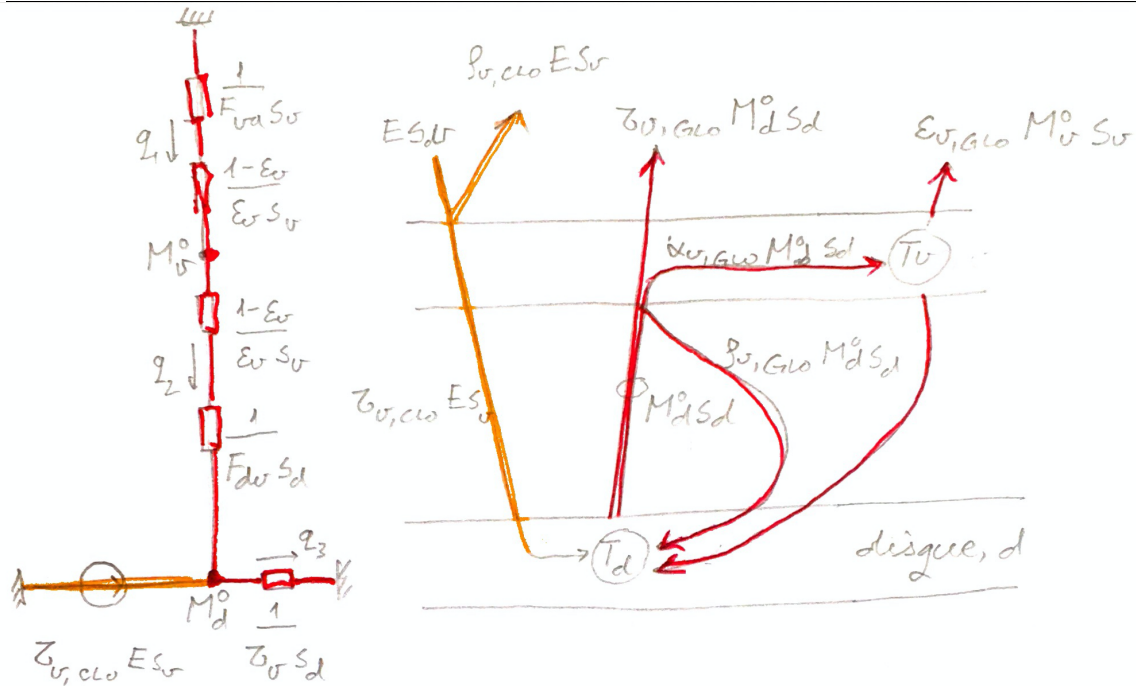 1
F_va S_v
q_1 ↓
1-ε_v
ε_v S_v
M_v^o
1-ε_v
ε_v S_v
q_2 ↓
1
F_dv S_d
→ q_3
M_d^o
1
τ_v S_d
τ_v,CLO E S_v
ρ_v,CLO E S_v
E S_v
τ_v,GLO M_d^o S_d
ε_v,GLO M_v^o S_v
α_v,GLO M_d^o S_d
T_v
ρ_v,GLO M_d^o S_d
τ_v,CLO E S_v
M_d^o S_d
T_d
disque, d